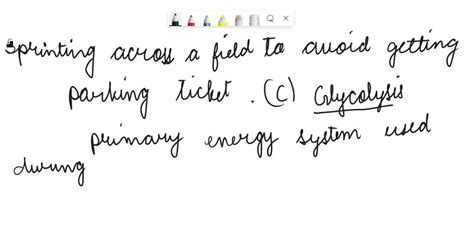 sprinting across a field to avoid getting
parking ticket . (C) Glycolysis
primary energy system used
during